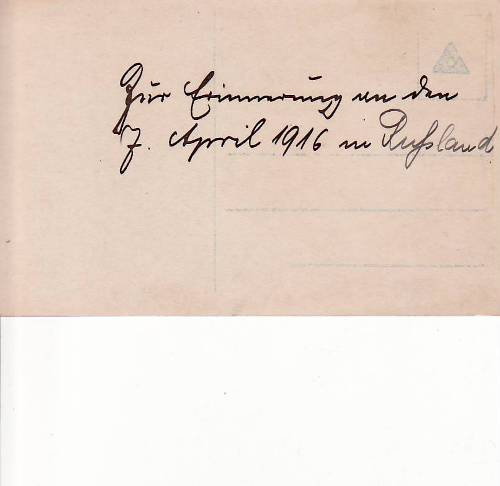 Zur Erinnerung an den
7. April 1916 in Russland